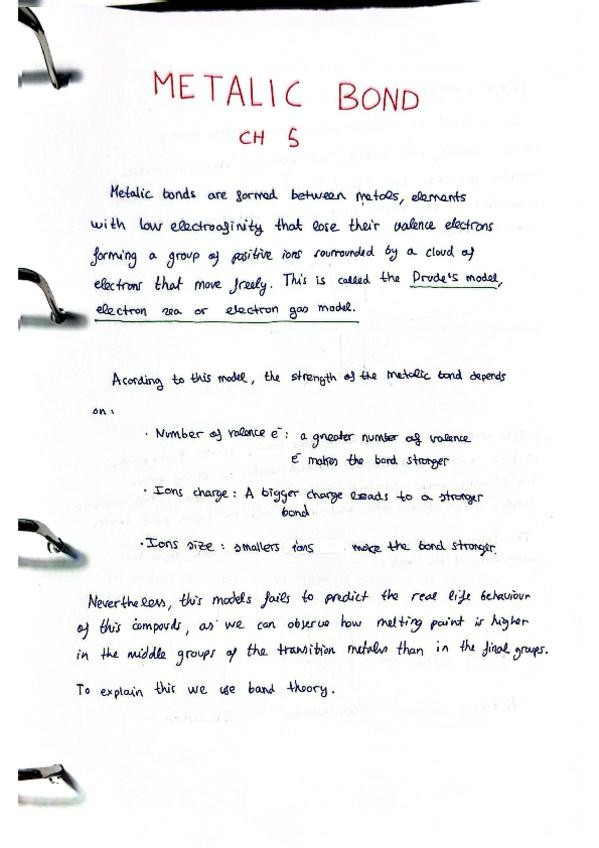 METALIC BOND
CH 5
Metalic bonds are formed between metals, elements
with low electroafinity that lose their valence electrons
forming a group of positive ions sourrounded by a cloud of
electrons that move freely. This is called the Drude's model,
electron sea or electron gas model.
Acording to this model, the strength of the metalic bond depends
on:
· Number of valence e⁻: a greater number of valence
e⁻ makes the bond stronger
· Ions charge: A bigger charge leads to a stronger
bond
· Ions size: smallers ions make the bond stronger.
Nevertheless, this models fails to predict the real life behaviour
of this compouds, as we can observe how melting point is higher
in the middle groups of the transition metals than in the final groups.
To explain this we use band theory.